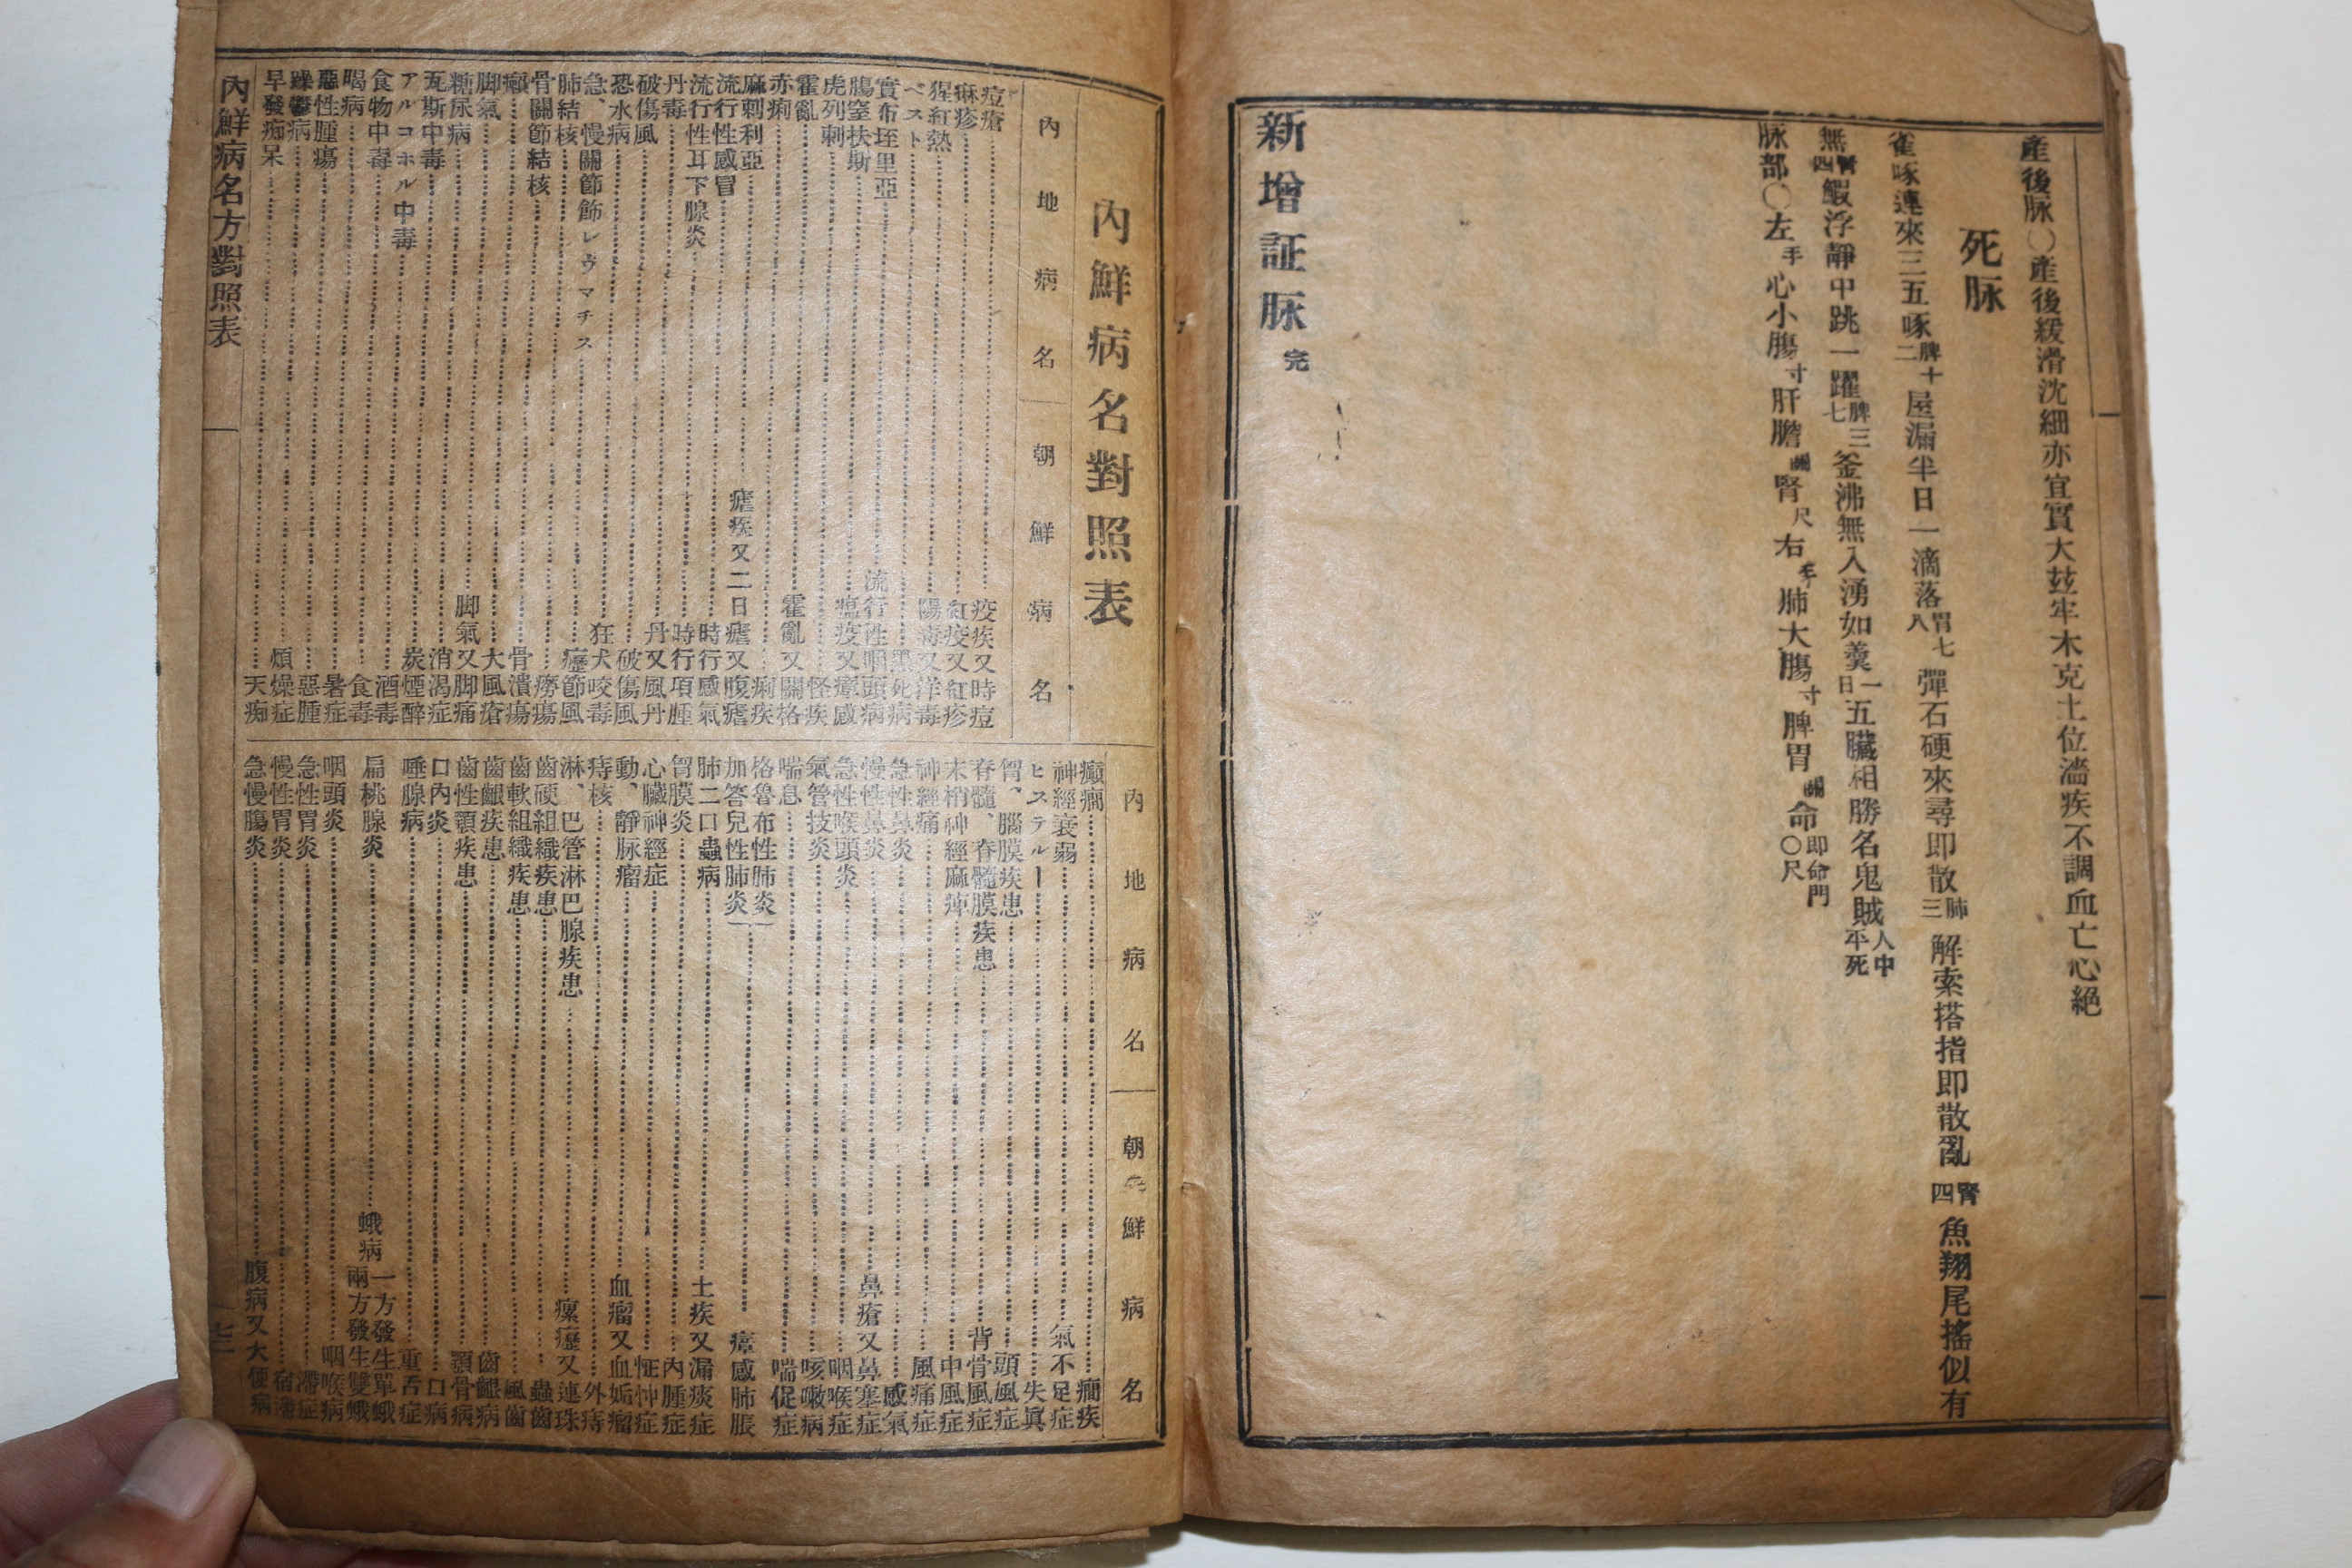 產後脉○產後緩滑沈細亦宜實大玆牢木克土位濫疾不調血亡心絕
死脉
雀啄連來三五啄脾十二屋漏半日一滴落胃七八彈石硬來尋即散肺三解索搭指即散亂腎四魚翔尾搖似有
無腎四鰕浮靜中跳一躍脾三七釜沸無入湧如羹一日五臟相勝名鬼賊人中平死
脉部○左手心小膓寸肝膽關腎尺右手肺大膓寸脾胃關命即命門○尺
新增証脉完
內鮮病名對照表
內地病名 朝鮮病名
痘瘡……疫疾又時痘
麻疹……紅疫又紅疹
猩紅熱……陽毒又洋毒
ペスト……黑死病
實布垤里亞……流行性咽頭病
膓窒扶斯……瘟疫又瘴感
虎列剌……怪疾
霍亂……霍亂又關格
赤痢……痢疾
麻剌利亞……瘧疾又二日瘧又腹瘧
流行性感冒……時行感氣
流行性耳下腺炎……時行項腫
丹毒……丹又風丹
破傷風……破傷風
恐水病……狂犬咬毒
急、慢關節飾レウマチス……歷節風
肺結核……癆瘍
骨關節結核……骨潰瘍
癩……大風瘡
脚氣……脚氣又脚痛
糖尿病……消渴症
瓦斯中毒……炭煙醉
アルコホル中毒……酒毒
食物中毒……食毒
暍病……暑症
惡性腫瘍……惡腫
躁鬱病……煩燥症
早發痴呆……天痴
內地病名 朝鮮病名
癲癇……癇疾
神經衰弱……氣不足症
ヒステルー……失眞
腎、腦膜疾患……頭風症
脊髓、脊髓膜疾患……背骨風症
末梢神經麻痺……中風症
神經痛……風痛症
急性鼻炎……感氣
慢性鼻炎……鼻瘡又鼻塞症
急性喉頭炎……咽喉症
氣管技炎……咳嗽病
喘息……喘促症
格魯布性肺炎
加答兒性肺炎……瘴感肺脹
肺二口蟲病……土疾又漏痰症
胃膜炎……內腫症
心臟神經症……怔忡症
動、靜脉瘤……血瘤又血妬瘤
痔核……外痔
淋、巴管淋巴腺疾患……瘰癧又連珠
齒硬組織疾患……蟲齒
齒軟組織疾患……風齒
齒齦疾患……齒齦病
齒性顎疾患……顎骨病
口內炎……口病
唾腺病……重舌症
扁桃腺炎……蛾病一方發生單蛾兩方發生雙蛾
咽頭炎……咽喉病
急性胃炎……滯症
慢性胃炎……宿滯
急慢膓炎……腹病又大便病
內鮮病名方對照表